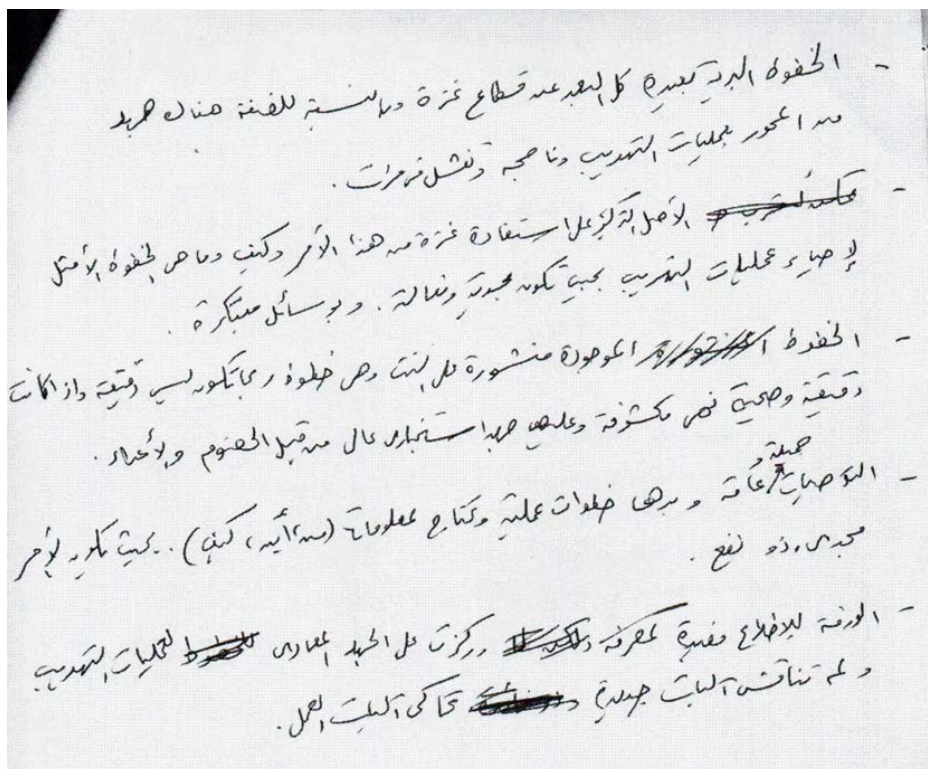 - الخطوط البرية بعيدة كل البعد عن قطاع غزة وبالنسبة للضفة هناك جهد
من المحور بعمليات التهريب وناجحه وتفشل في مرات .
- الأصل التركيز على استفادة غزة من هذا الأمر وكيف وما هي الخطوط الأمثل
لإحياء عمليات التهريب بحيث تكون مجدية وفعالة . وبوسائل مبتكرة .
- الخطوط الموجودة منشورة على النت وهي خطوط ربما تكون ليس دقيقة وإذا كانت
دقيقة وصحيحة فهي مكشوفة وعليها جهد استخباري عال من قبل الخصوم والأعداء .
- التوصيات جميلة و عامة و خطوات عملية وتحتاج لمعلومات (من، أين، كيف) . بحيث يكون الأمر
مجدي وذو نفع .
- الورقة للاطلاع مفيدة لمعرفة وركزت على الجهد المعادي لعمليات التهريب
ولم تناقش آليات جديدة تحاكي آليات العمل .